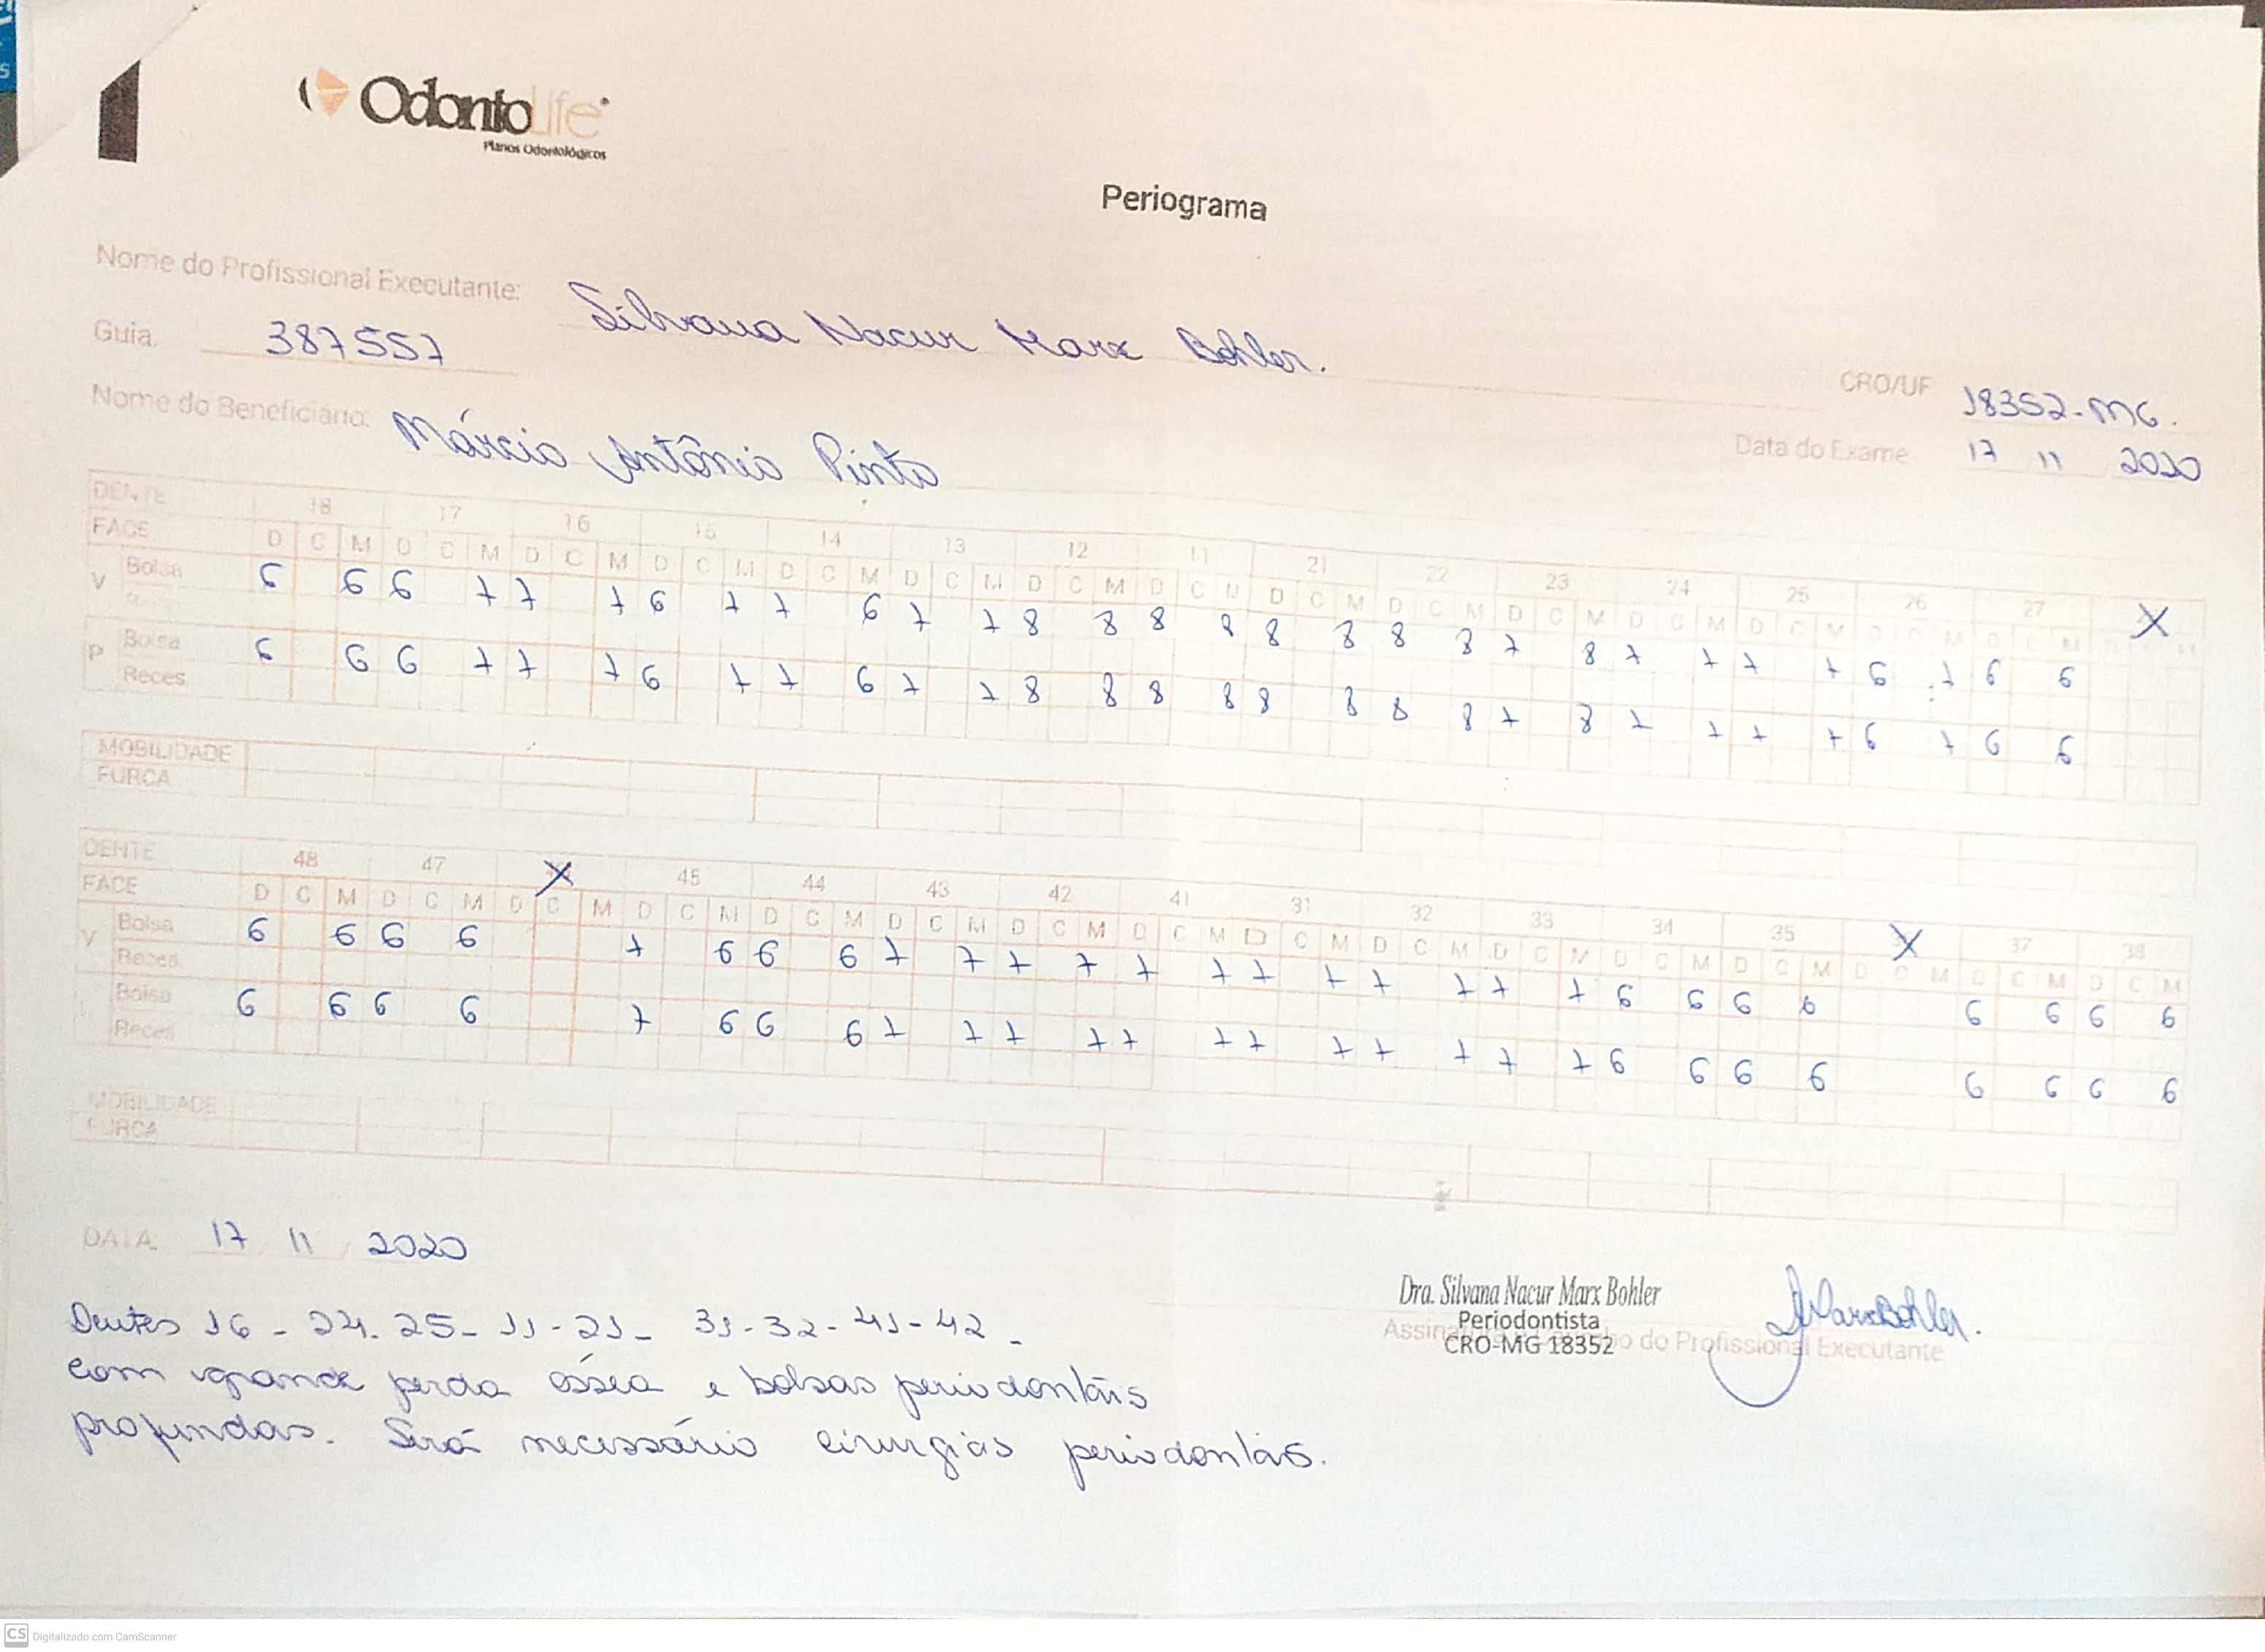 OdontoLife
Planos Odontológicos
Periograma
Nome do Profissional Executante: Silvana Nacur Marx Bohler.
Guia. 387557
CRO/UF 18352-MG.
Nome do Beneficiário: Márcio Antônio Pinto
Data do Exame 17 11 2020
DENTE 18 17 16 15 14 13 12 11 21 22 23 24 25 26 27 X
FACE D C M D C M D C M D C M D C M D C M D C M D C M D C M D C M D C M D C M D C M D C M D C M
V Bolsa 6 6 6 7 7 7 6 7 7 6 7 7 8 8 8 8 8 8 8 8 7 8 7 7 7 7 6 7 6 6
Reces
P Bolsa 6 6 6 7 7 7 6 7 7 6 7 7 8 8 8 8 8 8 8 8 7 8 7 7 7 7 6 7 6 6
Reces
MOBILIDADE
FURCA
DENTE 48 47 X 45 44 43 42 41 31 32 33 34 35 X 37 38
FACE D C M D C M D C M D C M D C M D C M D C M D C M D C M D C M D C M D C M D C M D C M D C M D C M
V Bolsa 6 6 6 6 7 6 6 6 7 7 7 7 7 7 7 7 7 7 7 7 6 6 6 6 6 6 6 6
Reces
Bolsa 6 6 6 6 7 6 6 6 7 7 7 7 7 7 7 7 7 7 7 7 6 6 6 6 6 6 6 6
Reces
MOBILIDADE
FURCA
DATA 17 11 2020
Dentes 16 - 24. 25 - 11 - 21 - 31 - 32 - 41 - 42 -
com grande perda óssea e bolsas periodontais
profundas. Será necessário cirurgias periodontais.
Dra. Silvana Nacur Marx Bohler
Periodontista
CRO-MG 18352
do Profissional Executante
CS Digitalizado com CamScanner